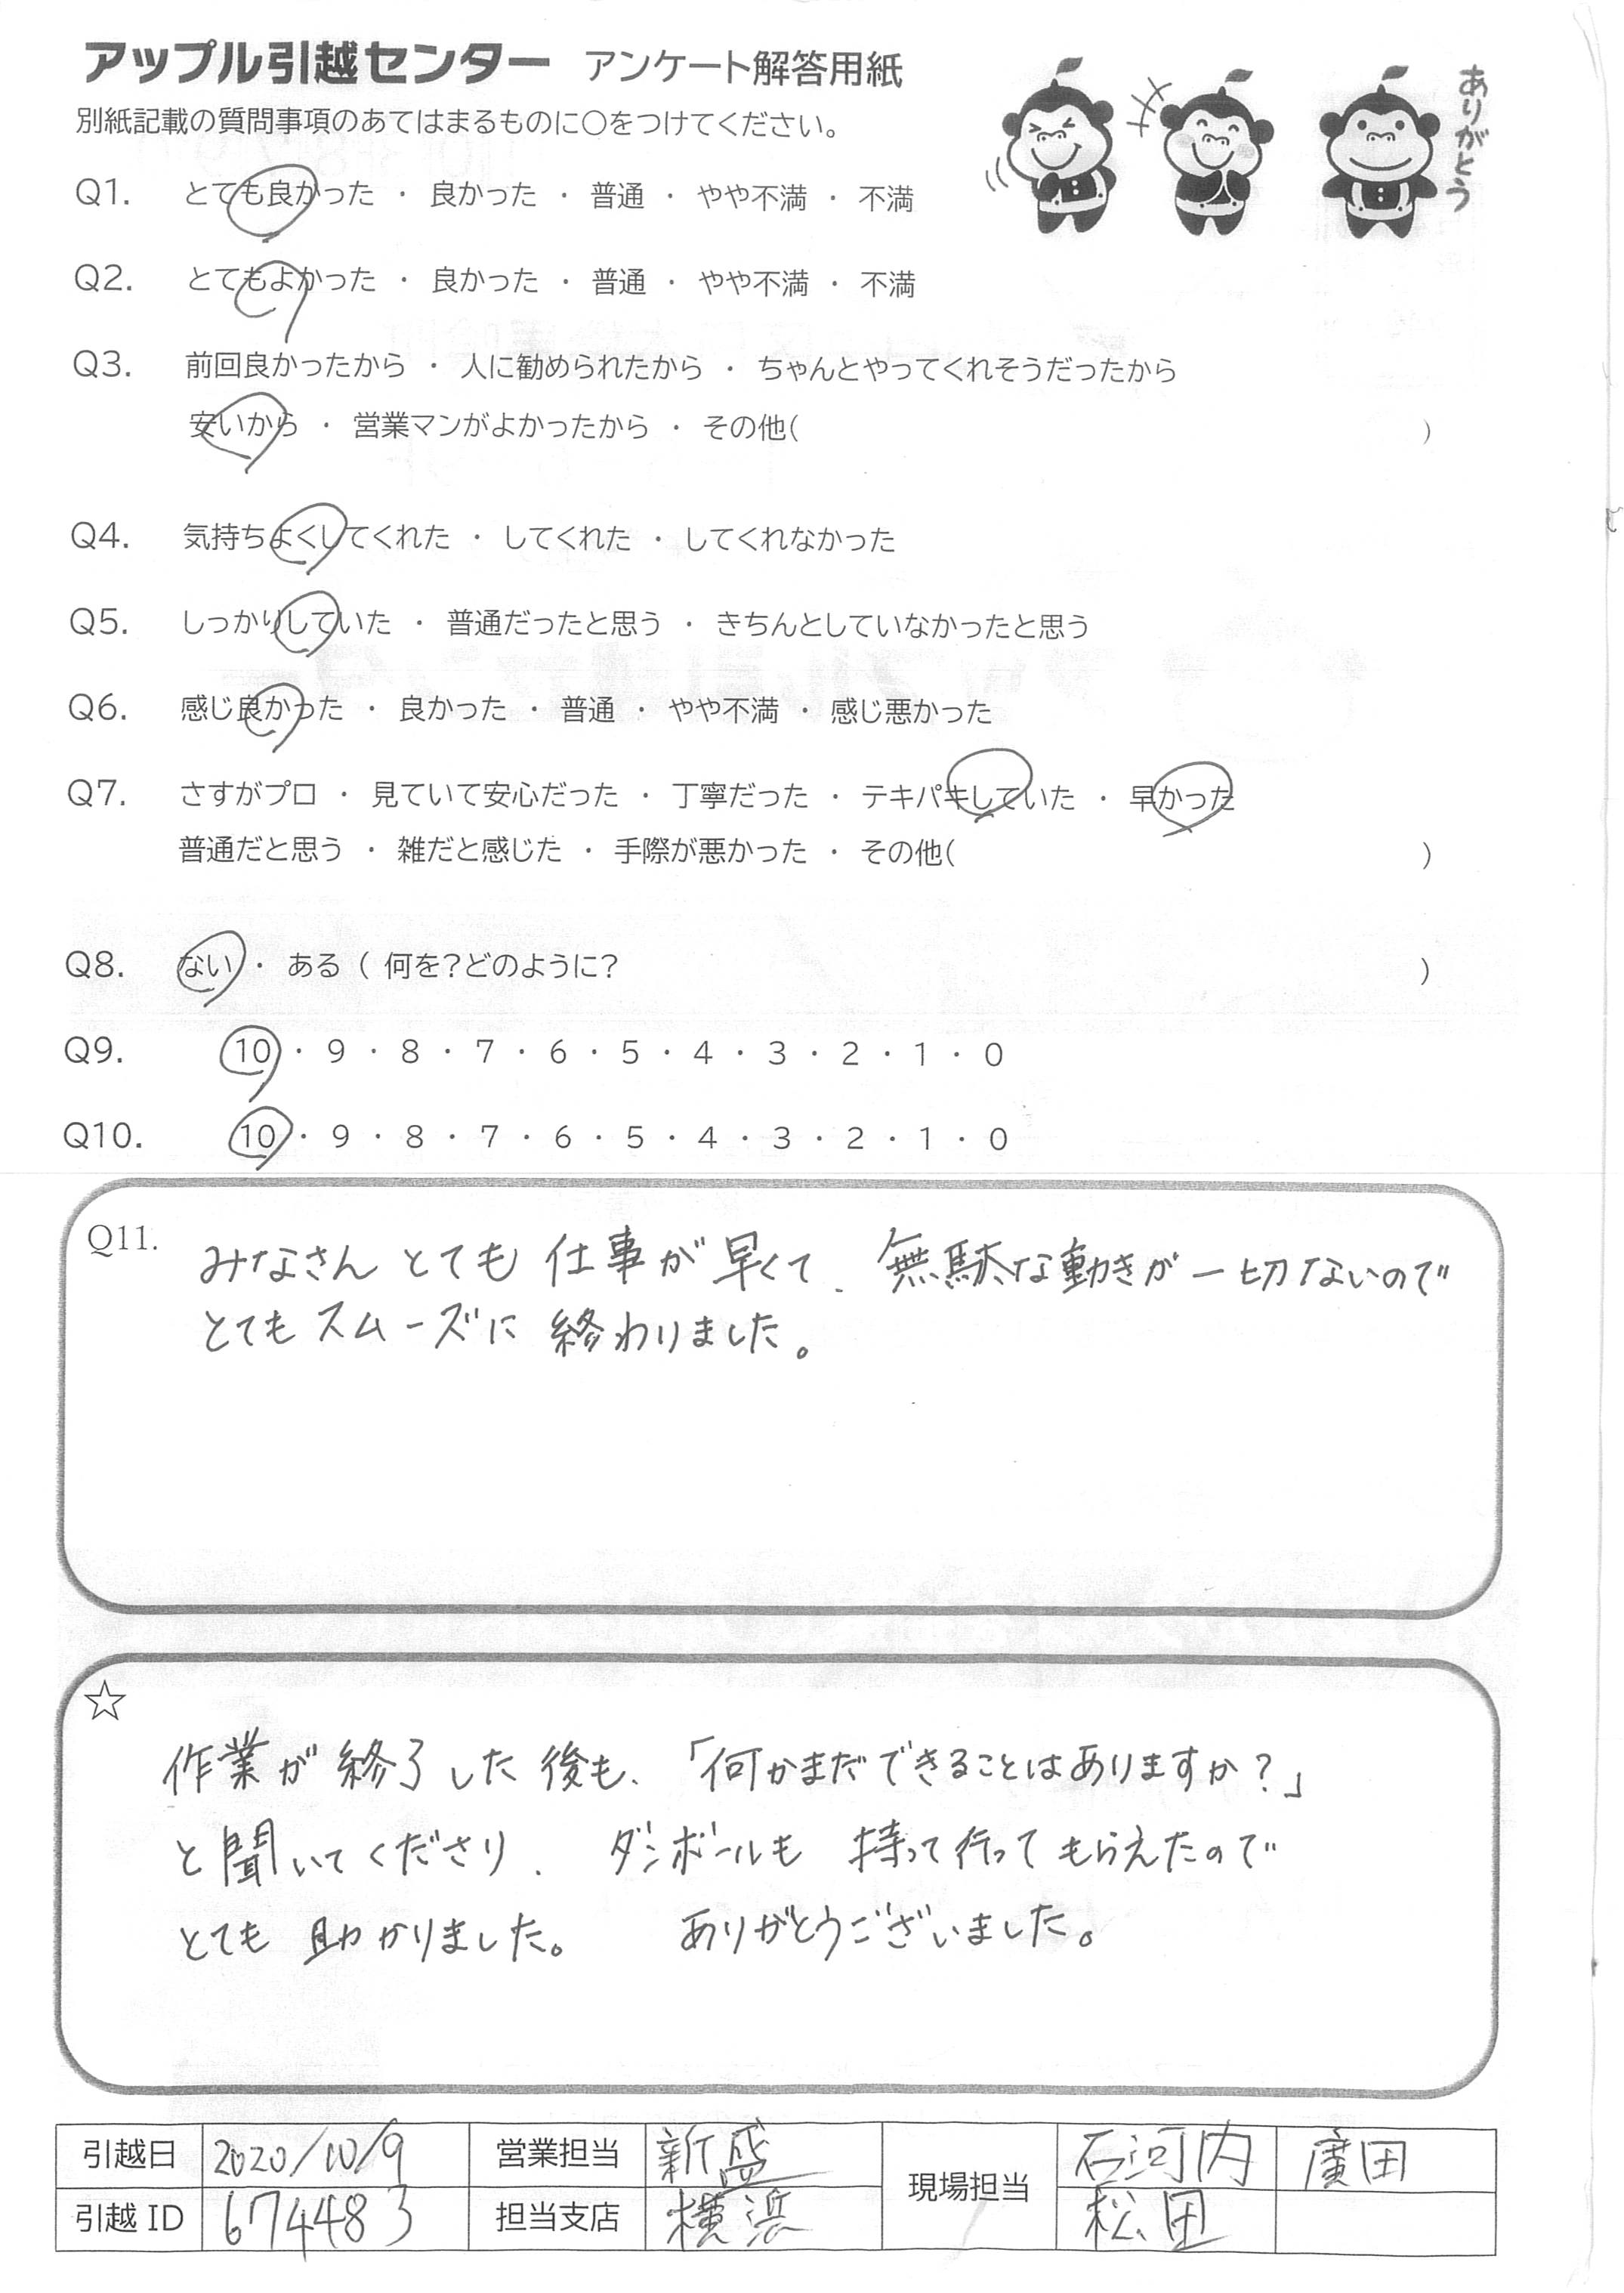 アップル引越センター アンケート解答用紙
別紙記載の質問事項のあてはまるものに○をつけてください。
ありがとう
Q1. とても良かった ・ 良かった ・ 普通 ・ やや不満 ・ 不満
Q2. とてもよかった ・ 良かった ・ 普通 ・ やや不満 ・ 不満
Q3. 前回良かったから ・ 人に勧められたから ・ ちゃんとやってくれそうだったから
安いから ・ 営業マンがよかったから ・ その他( )
Q4. 気持ちよくしてくれた ・ してくれた ・ してくれなかった
Q5. しっかりしていた ・ 普通だったと思う ・ きちんとしていなかったと思う
Q6. 感じ良かった ・ 良かった ・ 普通 ・ やや不満 ・ 感じ悪かった
Q7. さすがプロ ・ 見ていて安心だった ・ 丁寧だった ・ テキパキしていた ・ 早かった
普通だと思う ・ 雑だと感じた ・ 手際が悪かった ・ その他( )
Q8. ない ・ ある ( 何を?どのように? )
Q9. 10 ・ 9 ・ 8 ・ 7 ・ 6 ・ 5 ・ 4 ・ 3 ・ 2 ・ 1 ・ 0
Q10. 10 ・ 9 ・ 8 ・ 7 ・ 6 ・ 5 ・ 4 ・ 3 ・ 2 ・ 1 ・ 0
Q11. みなさん とても 仕事が 早くて、無駄な動きが一切ないので
とてもスムーズに 終わりました。
☆
作業が 終了した 後も、「何かまだできることはありますか?」
と聞いてくださり、 ダンボールも 持って行って もらえたので
とても 助かりました。 ありがとうございました。
引越日 2020/10/9 営業担当 新盛 現場担当 石河内 廣田
引越ID 674483 担当支店 横浜 松田